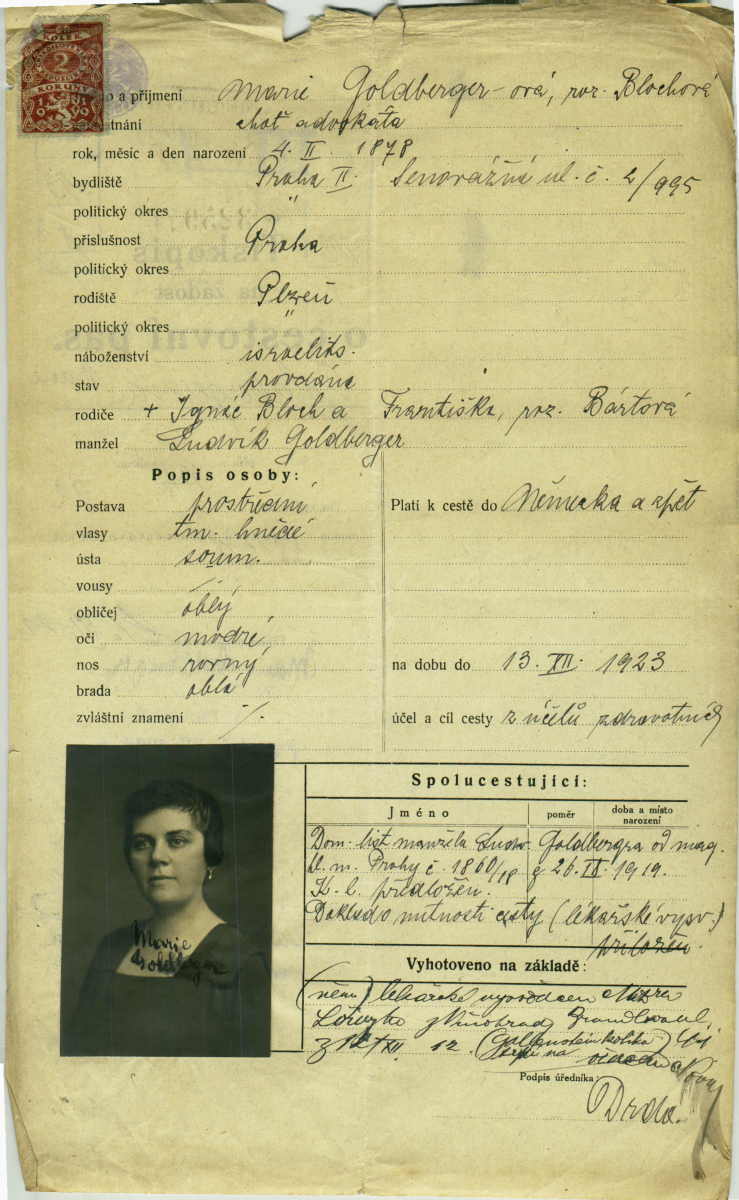 KOLEK
2
KORUNY
1919
o a příjmení Marie Goldberger-ová, roz. Blochová
stnání choť advokáta
rok, měsíc a den narození 4. II. 1878
bydliště Praha II. Senovážná ul. č. 2/995
politický okres "
příslušnost Praha
politický okres
rodiště Plzeň
politický okres "
náboženství israelits.
stav provdána
rodiče + Ignác Bloch a Františka, roz. Bártová
manžel Ludvík Goldberger
Popis osoby:
Postava prostřední
vlasy tm. hnědé
ústa soum.
vousy —
obličej oblý
oči modré
nos rovný
brada oblá
zvláštní znamení %.
Platí k cestě do Německa a zpět
na dobu do 13. XII. 1923
účel a cíl cesty z účelů zdravotních
Marie
Goldberger
Spolucestující:
Jméno poměr doba a místo
narození
Dom. list manžela Ludv. Goldbergra od mag.
hl. m. Prahy č. 1860/18 z 26. II. 1919.
K. l. předložen.
Doklad o nutnosti cesty (lékařské vysv.)
přiložen.
Vyhotoveno na základě:
(něm) lékařské vysvědčení
z Vinohrad
12. (Gallensteinkolik
Podpis úředníka:
Drda.